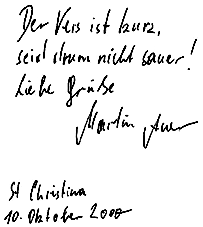 Der Vers ist kurz,
seid drum nicht sauer!
Liebe Grüße
Martin Auer
St Christina
10. Oktober 2000